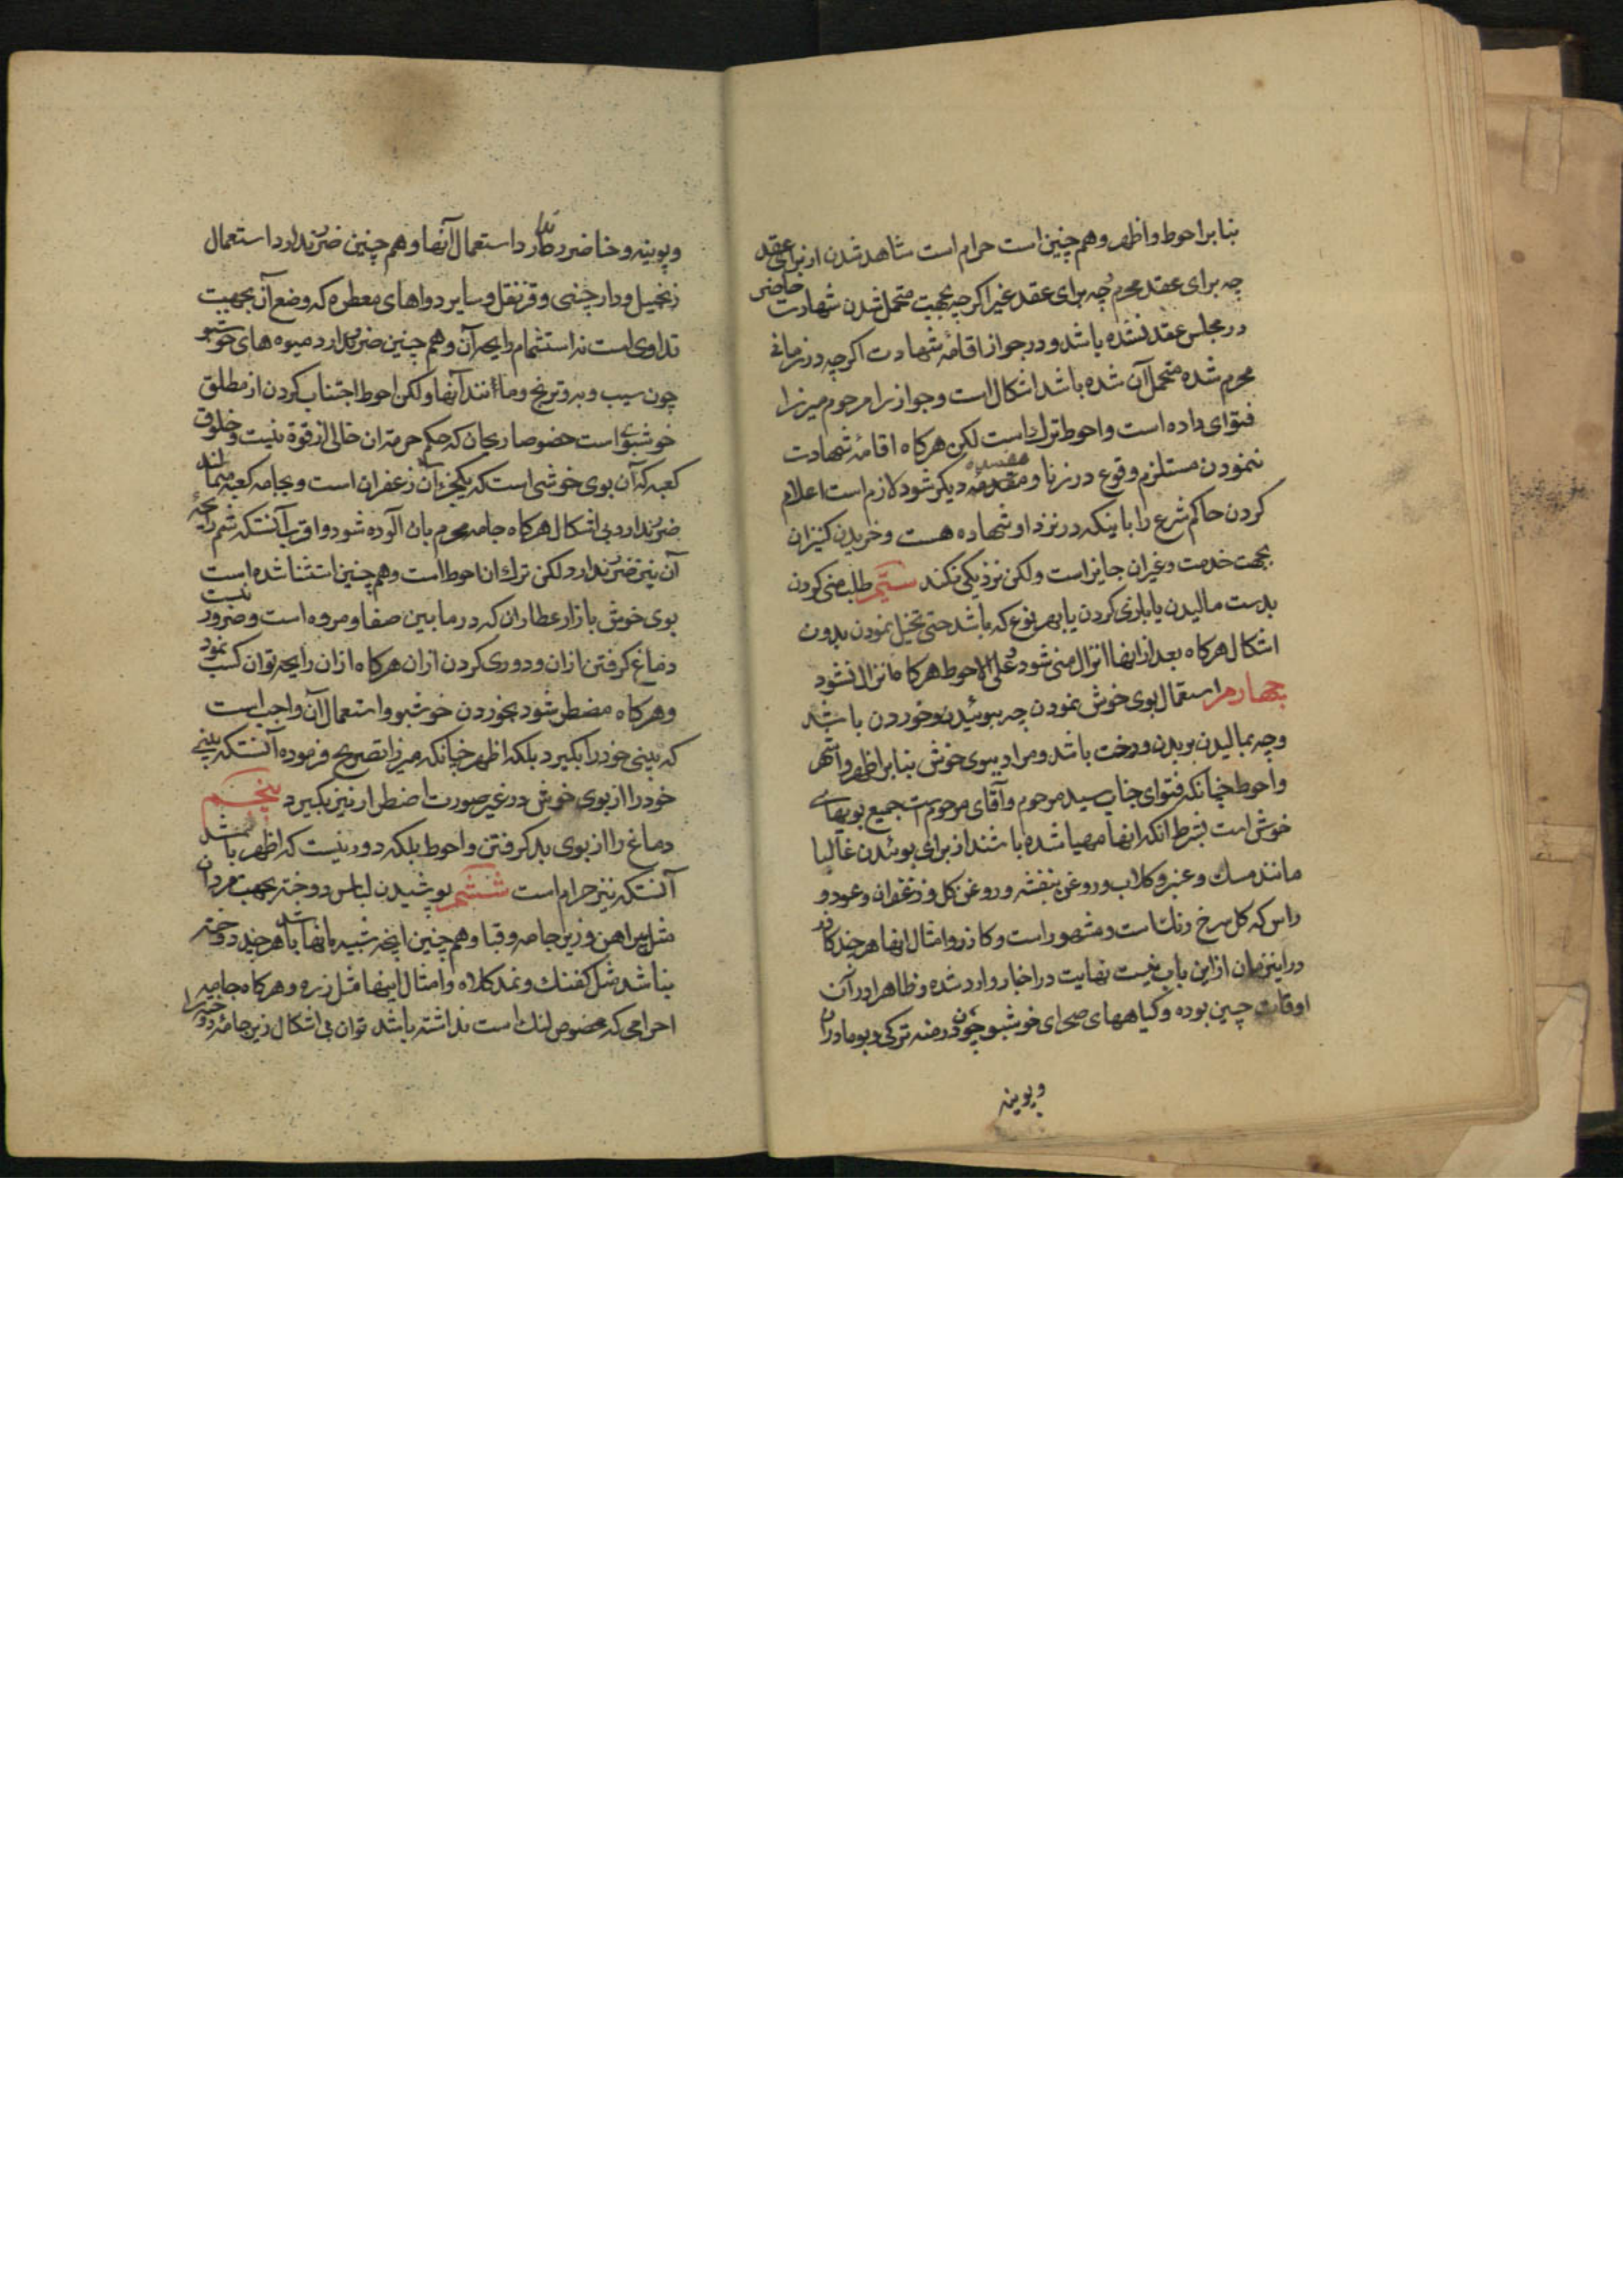 بنا بر احوط و اظهر و هم چنین است حرام است شاهد شدن از برای عقد
چه برای عقد محرم چه برای عقد غیر اگرچه بجهت متحمل شدن شهادت حاضر
در مجلس عقد نشده باشد و در جواز اقامهٔ شهادت اگرچه در زمانی
محرم شده متحمل آن شده باشد اشکال است و جواز را مرحوم میرزا
فتوای داده است و احوط ترک است لکن هرکاه اقامهٔ شهادت
ننمودن مستلزم وقوع در زنا و مفسده دیکر شود لازم است اعلام
کردن حاکم شرع را باینکه در نزد او شهاده هست و خریدن کنیزان
بجهت خدمت و غیران جایز است ولکن نزدیکی نکند ستیم طلب منی کردن
بدست مالیدن یا بازی کردن یا بهر نوع که باشد حتی تخیل نمودن بدون
اشکال هرکاه بعد از اینها انزال منی شود و علی الاحوط هرکاه انزال نشود
چهارم استعمال بوی خوش نمودن چه ببوئیدن و خوردن باشد
و چه بمالیدن بر بدن و رخت باشد و مراد ببوی خوش بنا بر اظهر و اشهر
و احوط چنانکه فتوای جناب سید مرحوم و آقای مرحوم است جمیع بویهای
خوش است بشرط انکه انها مهیا شده باشند از برای بوئیدن غالبا
مانند مسک و عنبر و کلاب و روغن بنفشه و روغن کل و زعفران و عود و
راس که کل سرخ رنک است و مشهور است و کاذر و امثال انها هرچند کاذر
در این زمان از این باب نیست نهایت در اخبار وارد شده و ظاهرا در آن
اوقات چنین بوده و کیاههای صحرای خوشبو چون درمنه ترکی و بومادران
و پوینه
و پوینه و حنا ضرر ندارد استعمال آنها و هم چنین ضرر ندارد استعمال
زنجبیل و دارچنی و قرنفل و سایر دواهای معطره که وضع آن بجهت
تداوی است نه استشمام رایحه آن و هم چنین ضرر ندارد میوه های خوشبو
چون سیب و به و ترنج و مانند آنها ولکن احوط اجتناب کردن از مطلق
خوشبوی است خصوصا ریحان که حکم حرمة ان خالی از قوة نیست و خلوق
کعبه که آن بوی خوشی است که یکجزء آن زعفران است و بجامه کعبه میمالند
ضرر ندارد بی اشکال هرکاه جامه محرم بان آلوده شود و اقرب آنستکه شم رایحهٔ
آن نیز ضرر ندارد ولکن ترک ان احوط است و هم چنین استثنا شده است
بوی خوش بازار عطاران که در ما بین صفا و مروه است و ضرور نیست
دماغ کرفتن ازان و دوری کردن ازان هرکاه ازان رایحه توان کسب نمود
و هرکاه مضطر شود بخوردن خوشبو و استعمال آن واجب است
که بینی خود را بکیرد بلکه اظهر چنانکه میرزا تصریح فرموده آنستکه بینی
خود را از بوی خوش در غیر صورت اضطرار نیز بکیرد پنجم
دماغ را از بوی بد کرفتن و احوط بلکه دور نیست که اظهر باشد
آنستکه نیز حرام است ششم پوشیدن لباس دوخته بجهت مردان
مثل پیراهن و زیر جامه و قبا و هم چنین اینچه شبیه بانها باشد هرچند دوخته
نباشد مثل کفنک و نمد کلاه و امثال اینها مثل زره و هرکاه جامه
احرامی که مخصوص لنک است نداشته باشد توان بی اشکال زیر جامهٔ دوخته را